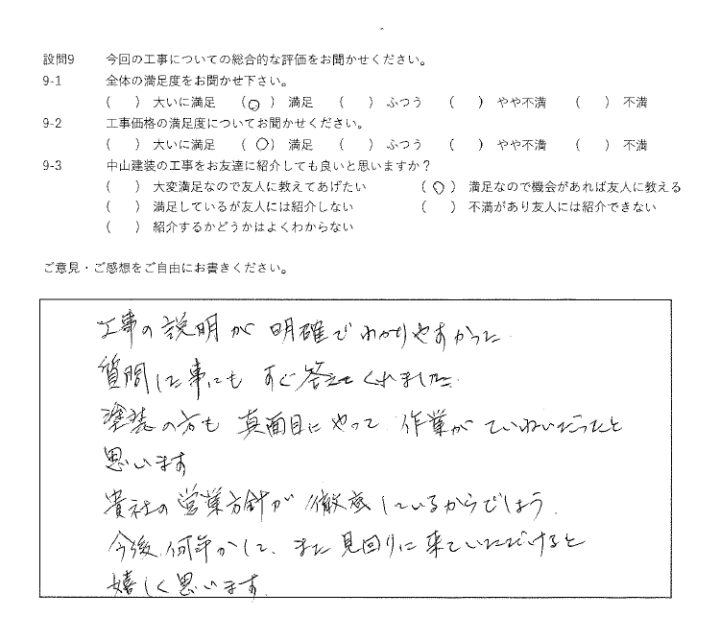 設問9 今回の工事についての総合的な評価をお聞かせください。
9-1 全体の満足度をお聞かせ下さい。
( ) 大いに満足 (○) 満足 ( ) ふつう ( ) やや不満 ( ) 不満
9-2 工事価格の満足度についてお聞かせください。
( ) 大いに満足 (○) 満足 ( ) ふつう ( ) やや不満 ( ) 不満
9-3 中山建装の工事をお友達に紹介しても良いと思いますか?
( ) 大変満足なので友人に教えてあげたい (○) 満足なので機会があれば友人に教える
( ) 満足しているが友人には紹介しない ( ) 不満があり友人には紹介できない
( ) 紹介するかどうかはよくわからない
ご意見・ご感想をご自由にお書きください。
工事の説明が明確でわかりやすかった
質問した事にもすぐ答えてくれました.
塗装の方も真面目にやって作業がていねいだったと
思います
貴社の営業方針が徹底しているからでしょう.
今後、何年かして、また見回りに来ていただけると
嬉しく思います.